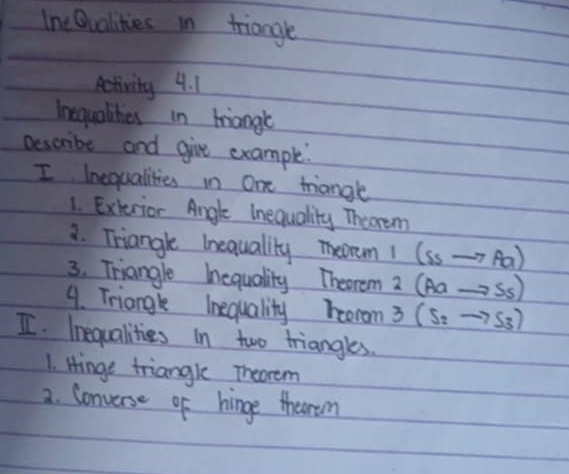 IneQualities in triangle
Activity 4.1
Inequalities in triangle
Describe and give example:
I. Inequalities in One triangle
1. Exterior Angle Inequality Theorem
2. Triangle Inequality Theorem 1 (Ss → Aa)
3. Triangle Inequality Theorem 2 (Aa → Ss)
4. Triangle Inequality Theorem 3 (S₂ → S₃)
II. Inequalities in two triangles.
1. Hinge triangle Theorem
2. Converse of hinge theorem